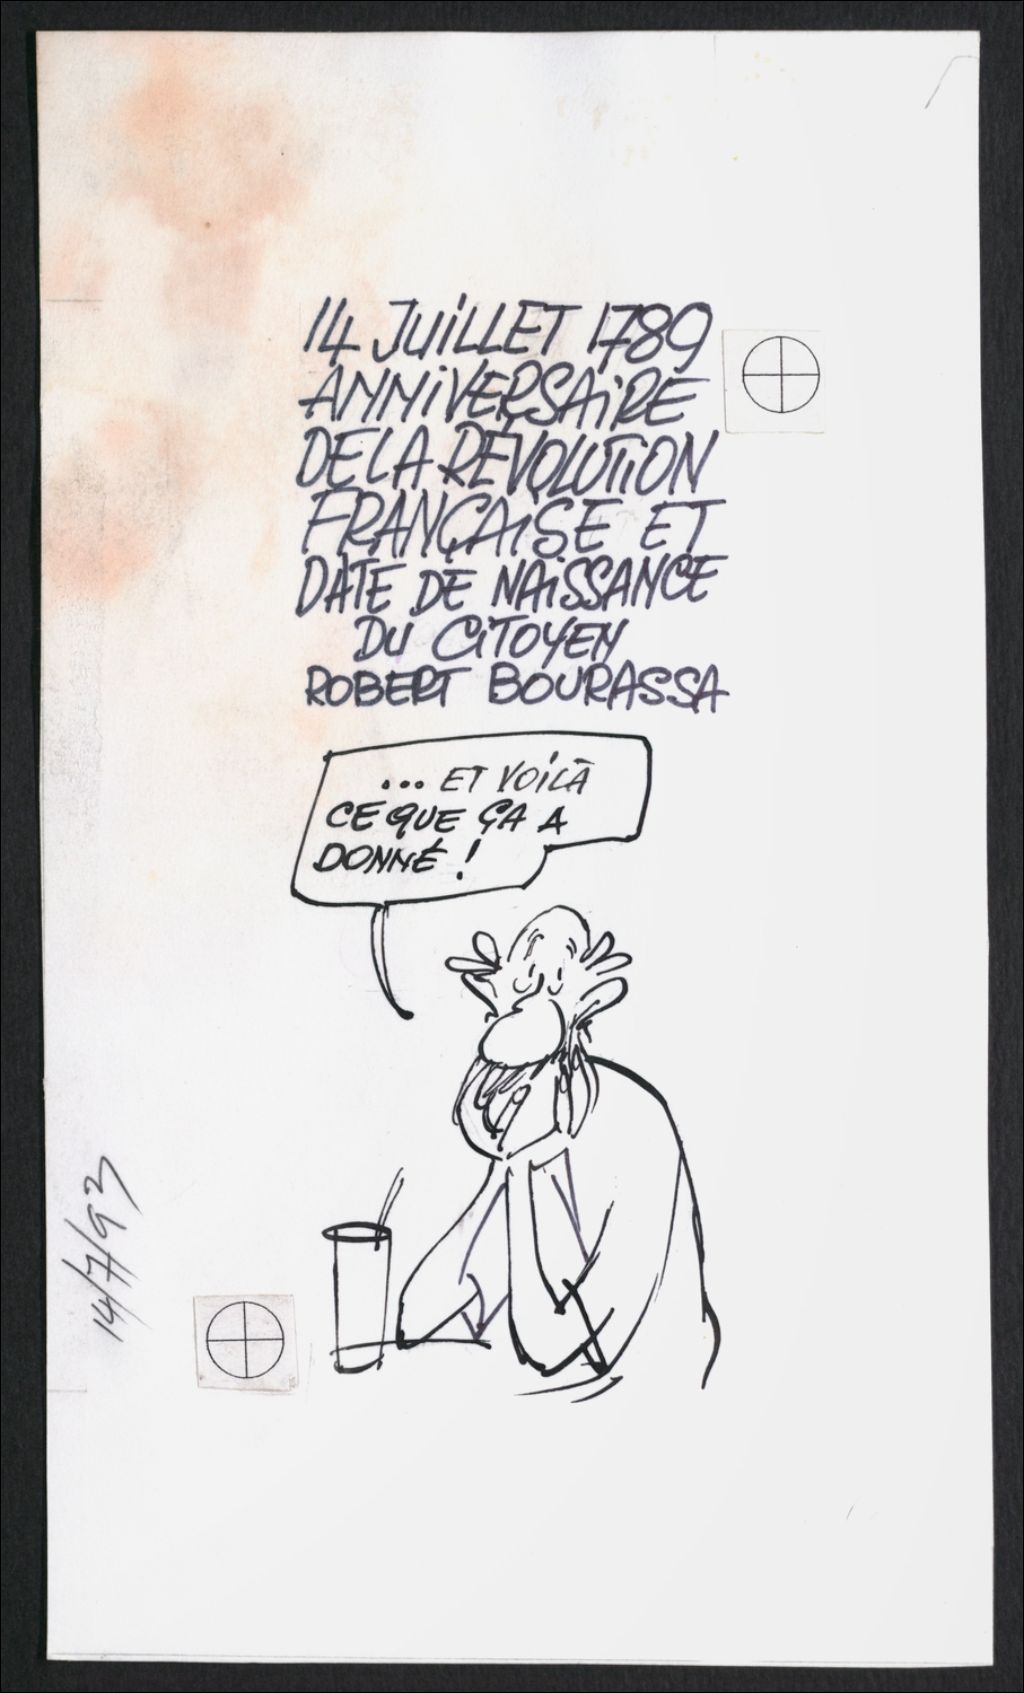 14 JUILLET 1789
ANNIVERSAIRE
DE LA RÉVOLUTION
FRANÇAISE ET
DATE DE NAISSANCE
DU CITOYEN
ROBERT BOURASSA
... ET VOILÀ
CE QUE ÇA A
DONNÉ !
14/7/93